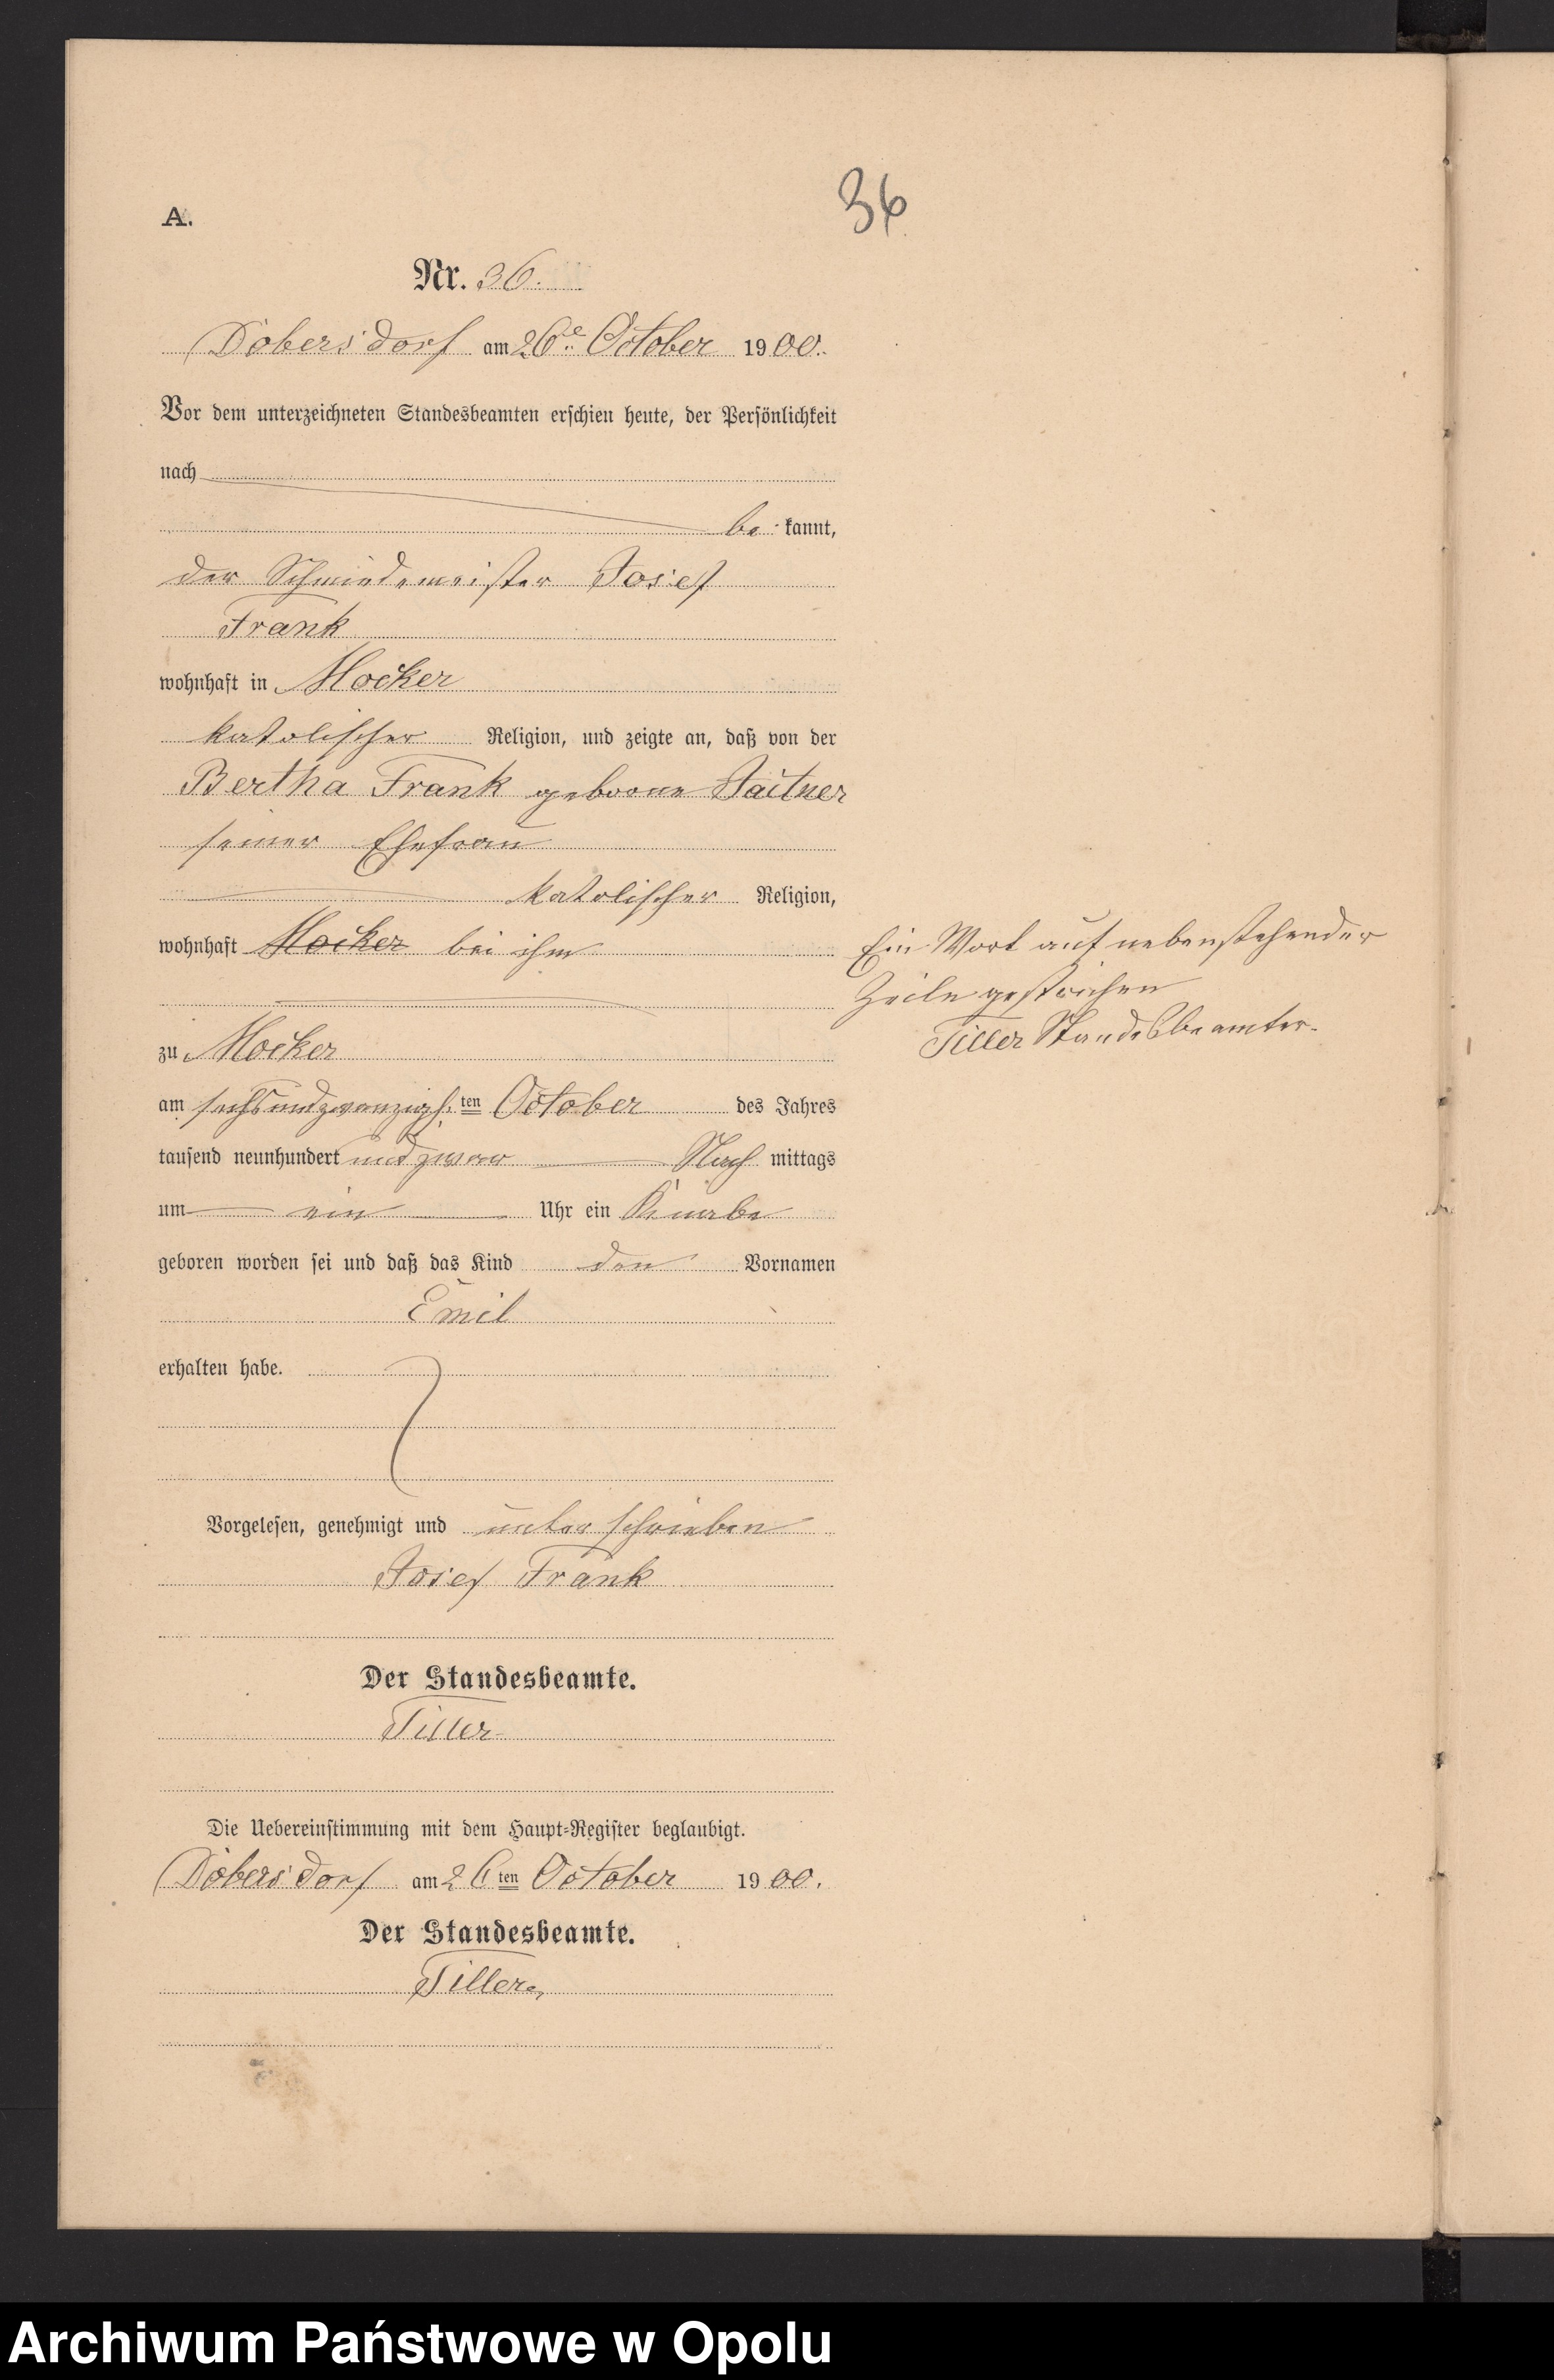 36
A.
Nr. 36.
Dobersdorf am 26te October 1900.
Vor dem unterzeichneten Standesbeamten erschien heute, der Persönlichkeit
nach
be kannt,
der Schmiedemeister Josef
Frank
wohnhaft in Mocker
katolischer Religion, und zeigte an, daß von der
Bertha Frank geborne
seiner Ehefrau
katolischer Religion,
wohnhaft Mocker bei ihm
Ein Wort auf nebenstehender
Zeile gestrichen
Tiller Standesbeamter.
zu Mocker
am sechsundzwanzigs ten October des Jahres
tausend neunhundert und zwar Nach mittags
um ein Uhr ein Knabe
geboren worden sei und daß das Kind den Vornamen
Emil
erhalten habe.
Vorgelesen, genehmigt und unterschrieben
Josef Frank
Der Standesbeamte.
Tiller
Die Uebereinstimmung mit dem Haupt-Register beglaubigt.
Dobersdorf am 26 ten October 1900.
Der Standesbeamte.
Tiller
Archiwum Państwowe w Opolu